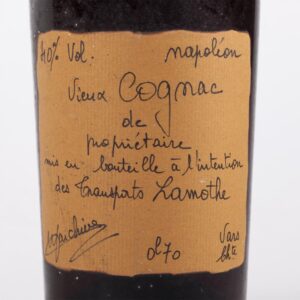 40% Vol. napoléon
Vieux Cognac
de
propriétaire
mis en bouteille à l'intention
des Transports Lamothe
0l70
Vars
Chte